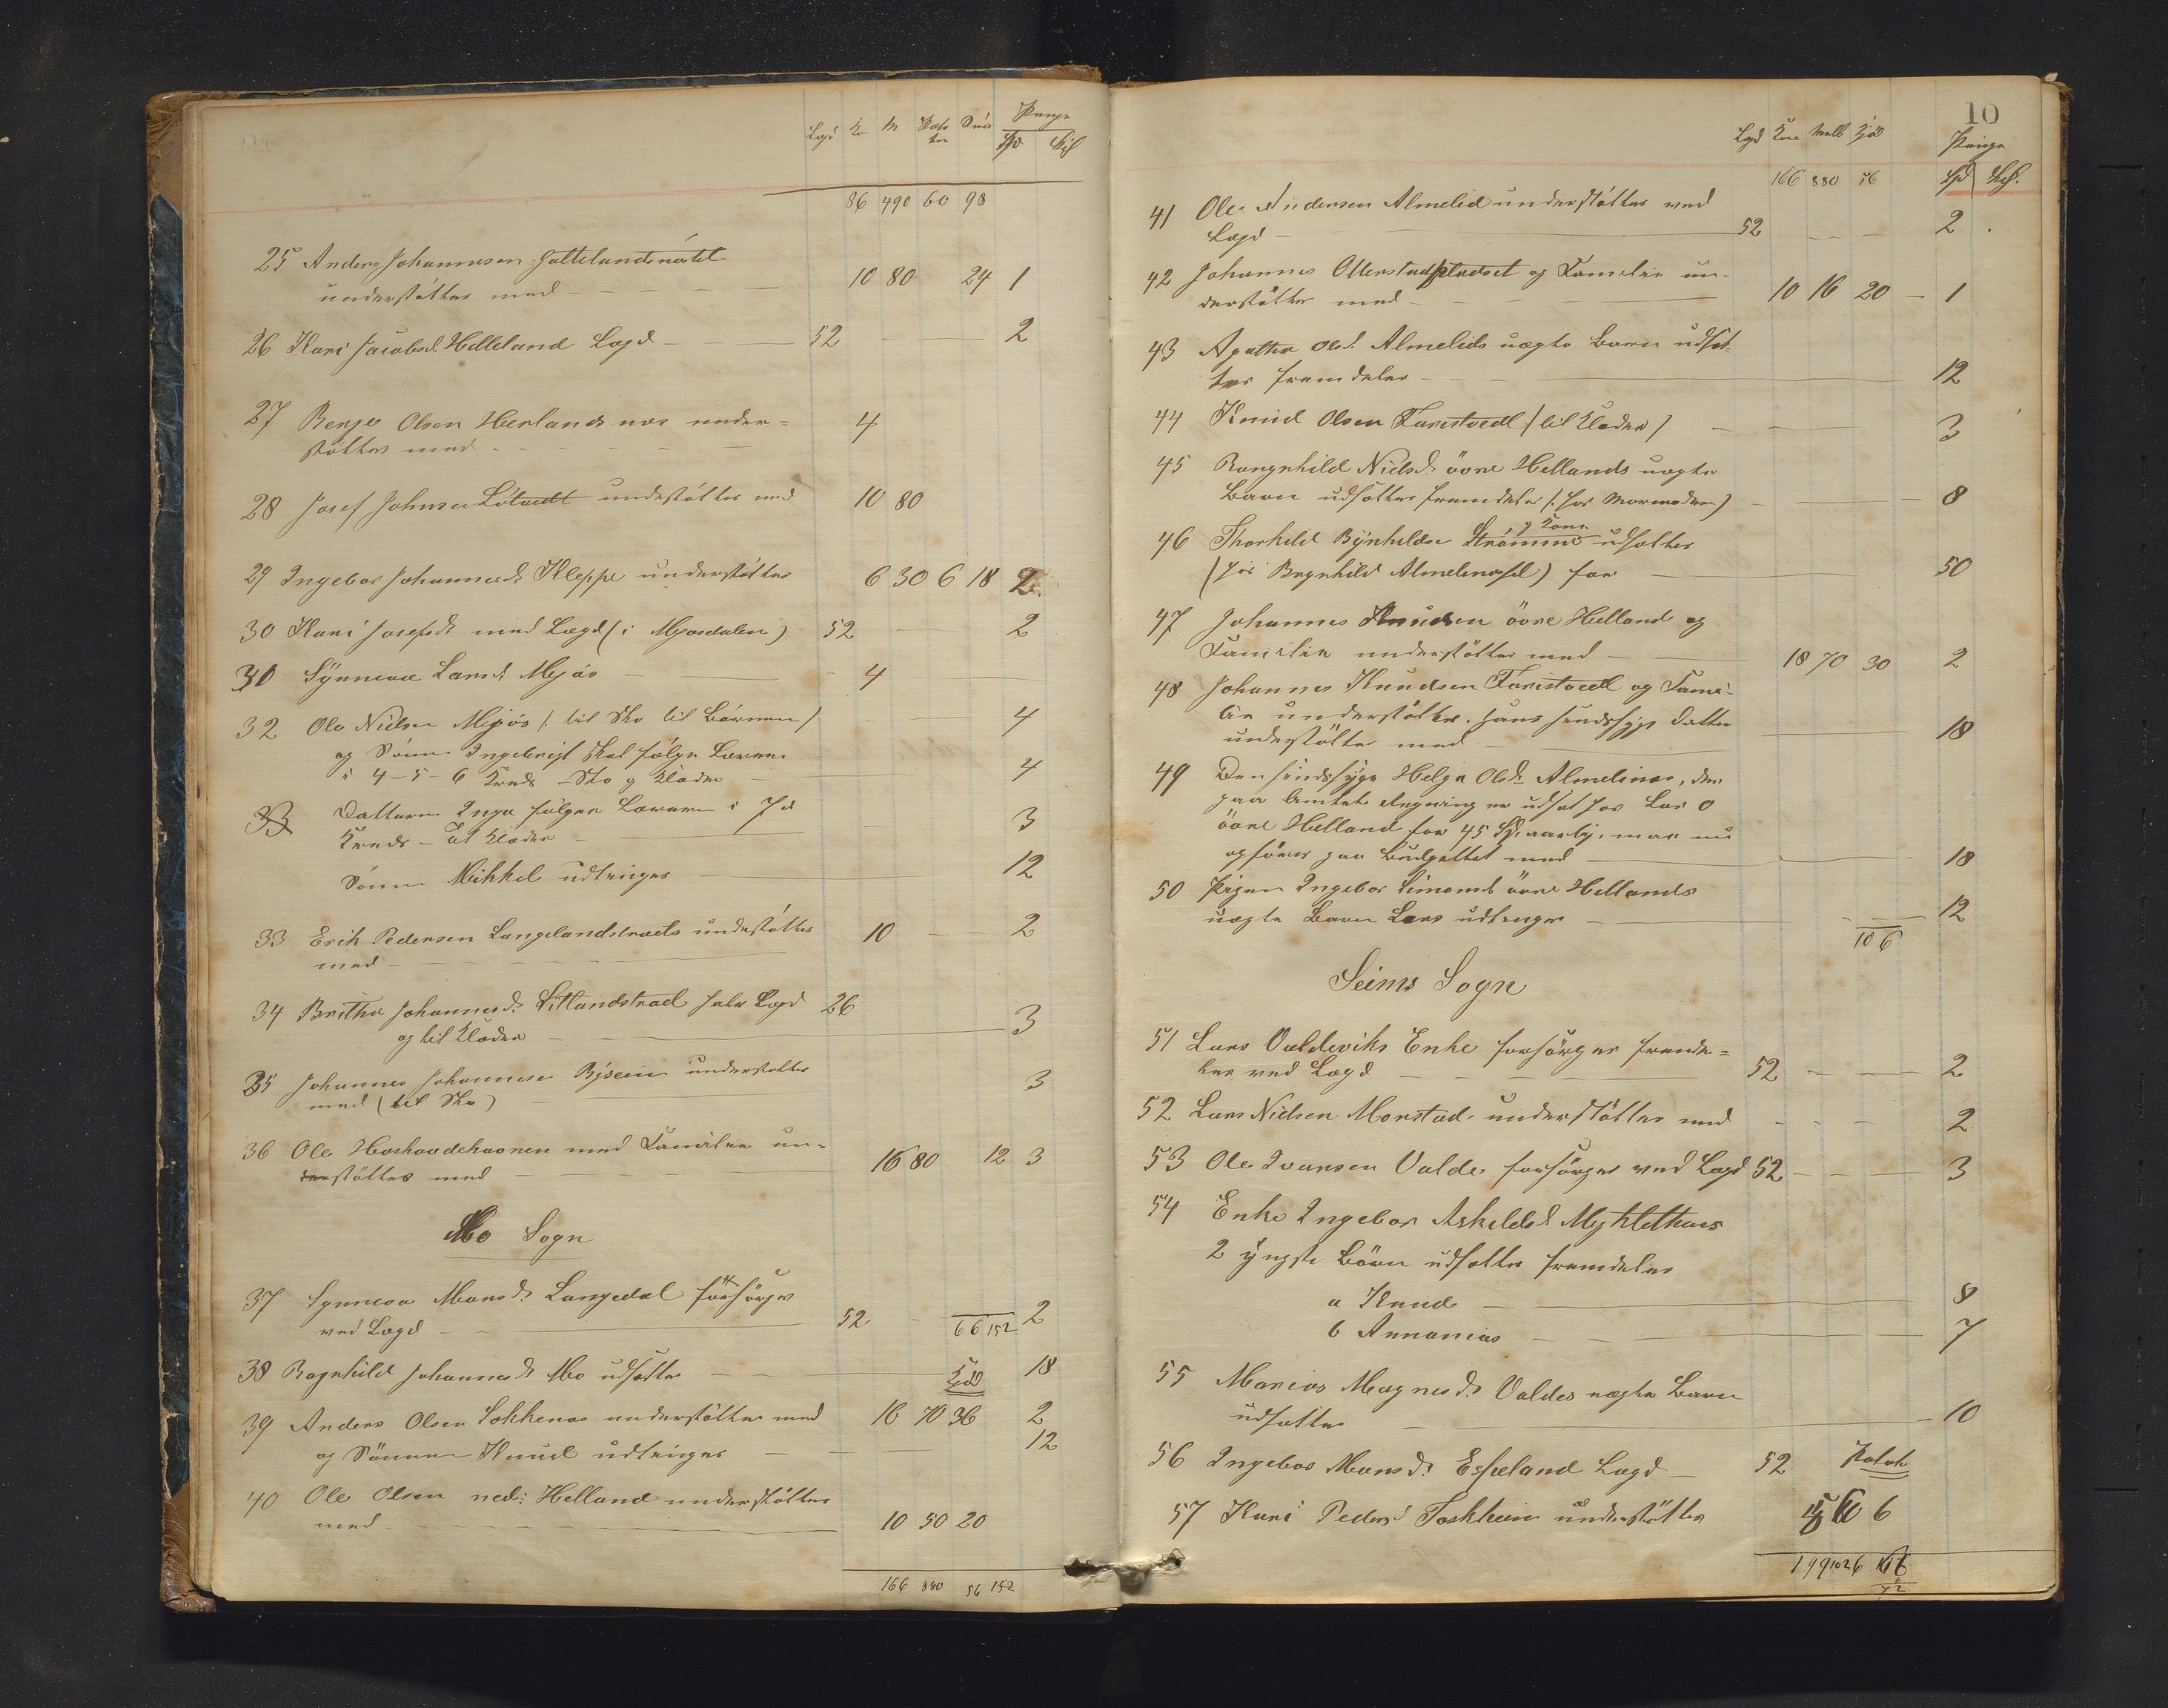 Lægd Kr M Pote Smør Penge
ter Spd Sk
86 490 60 98
25 Anders Johannesen Hallelandsnøtel
understøttes med 10 80 24 1
26 Kari Jacobsd. Helleland Lægd 52 2
27 Olsen under=
støttes med 4
28 Josef Johnsen understøttes med 10 80
29 Ingebor Johannesd. Kleppe understøttes 6 30 6 18 2
30 Kari Josefsd. med Lægd (i Mjosdalen) 52 2
31 Synneva Larsd. Mjøs 4
32 Ole Nielsen Mjøs /: til Sko til Børnene / 4
og Sønnen Ingebrigt skal følge Læreren
i 4-5-6 Kreds - Sko og Klæder 4
33 Datteren Inga følger Læreren i 7de
Kreds - til Klæder 3
Sønnen Mikkel udtinges 12
33 Erik Pedersen Langelandstræets understøttes
med 10 2
34 Britha Johannesd. halv Lægd 26
og til Klæder 3
35 Johannes Johannesen understøttes
med (til Sko) 3
36 Ole med Familie un=
derstøttes med 16 80 12 3
Mo Sogn
37 Synneva Monsd. Langedal forsørges
ved Lægd 52 66 152 2
38 Ragnhild Johannesd. Mo udsættes Kjød 18
39 Anders Olsen understøttes med 16 70 36 2
og Sønnen Knud udtinges 12
40 Ole Olsen ned: Helland understøttes
med 10 50 20
166 880 56 152
10
Lægd Korn Malt Kjød Penge
166 880 56 Spd Sk.
41 Ole Andersen Almelid understøttes ved
Lægd 52 2
42 Johannes Otterstadpladset og Familie un-
derstøttes med 10 16 20 1
43 Agatha Olsd. Almelids uægte Barn udsæt-
tes fremdeles 12
44 Knud Olsen Farestvedt / til Klæder / 3
45 Rangnhild Nielsd. øvre Hellands uægte
Barn udsættes fremdeles (: hos Mormoderen) 8
og Kone
46 Thorkild Strømme udsættes
(hos Brynhild) for 50
47 Johannes Knudsen øvre Helland og
Familie understøttes med 18 70 30 2
48 Johannes Knudsen Farestvedt og Fami-
lie understøttes. Hans sindssyge Datter
understøttes med 18
49 Den sindssyge Helga Olsd. Almelines, der
paa Amtets Regning er udsat hos Lars O
øvre Helland for 45 Spd. aarlig, maa nu
opføres paa Budgettet med 18
50 Pigen Ingebor Simonsd. øvre Hellands
uægte Barn Lars udtinges 12
106
Seims Sogn
51 Lars Valdeviks Enke forsørges fremde=
les ved Lægd 52 2
52 Lars Nielsen Monstad understøttes med 2
53 Ole Ivarsen Valde forsørges ved Lægd 52 3
54 Enke Ingebor Askildsd. Myhlethuns
2 yngste Børn udsættes fremdeles
a Knud 8
b Annanias 7
55 Marias Magnesd. Valdes uægte Barn
udsættes 10
56 Ingebor Monsd. Espeland Lægd 52 Potet
57 Kari Pedersd. Toskheim understøttes 60 6
199 1026 106
72